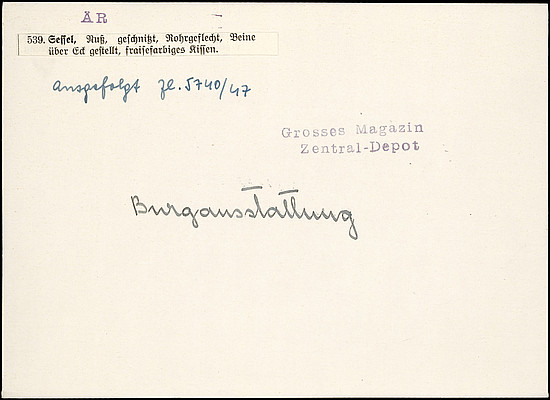 ÄR
539. Sessel, Nuß, geschnitzt, Rohrgeflecht, Beine
über Eck gestellt, fraisefarbiges Kissen.
Ausgefolgt Zl. 5740/47
Grosses Magazin
Zentral-Depot
Burgausstattung